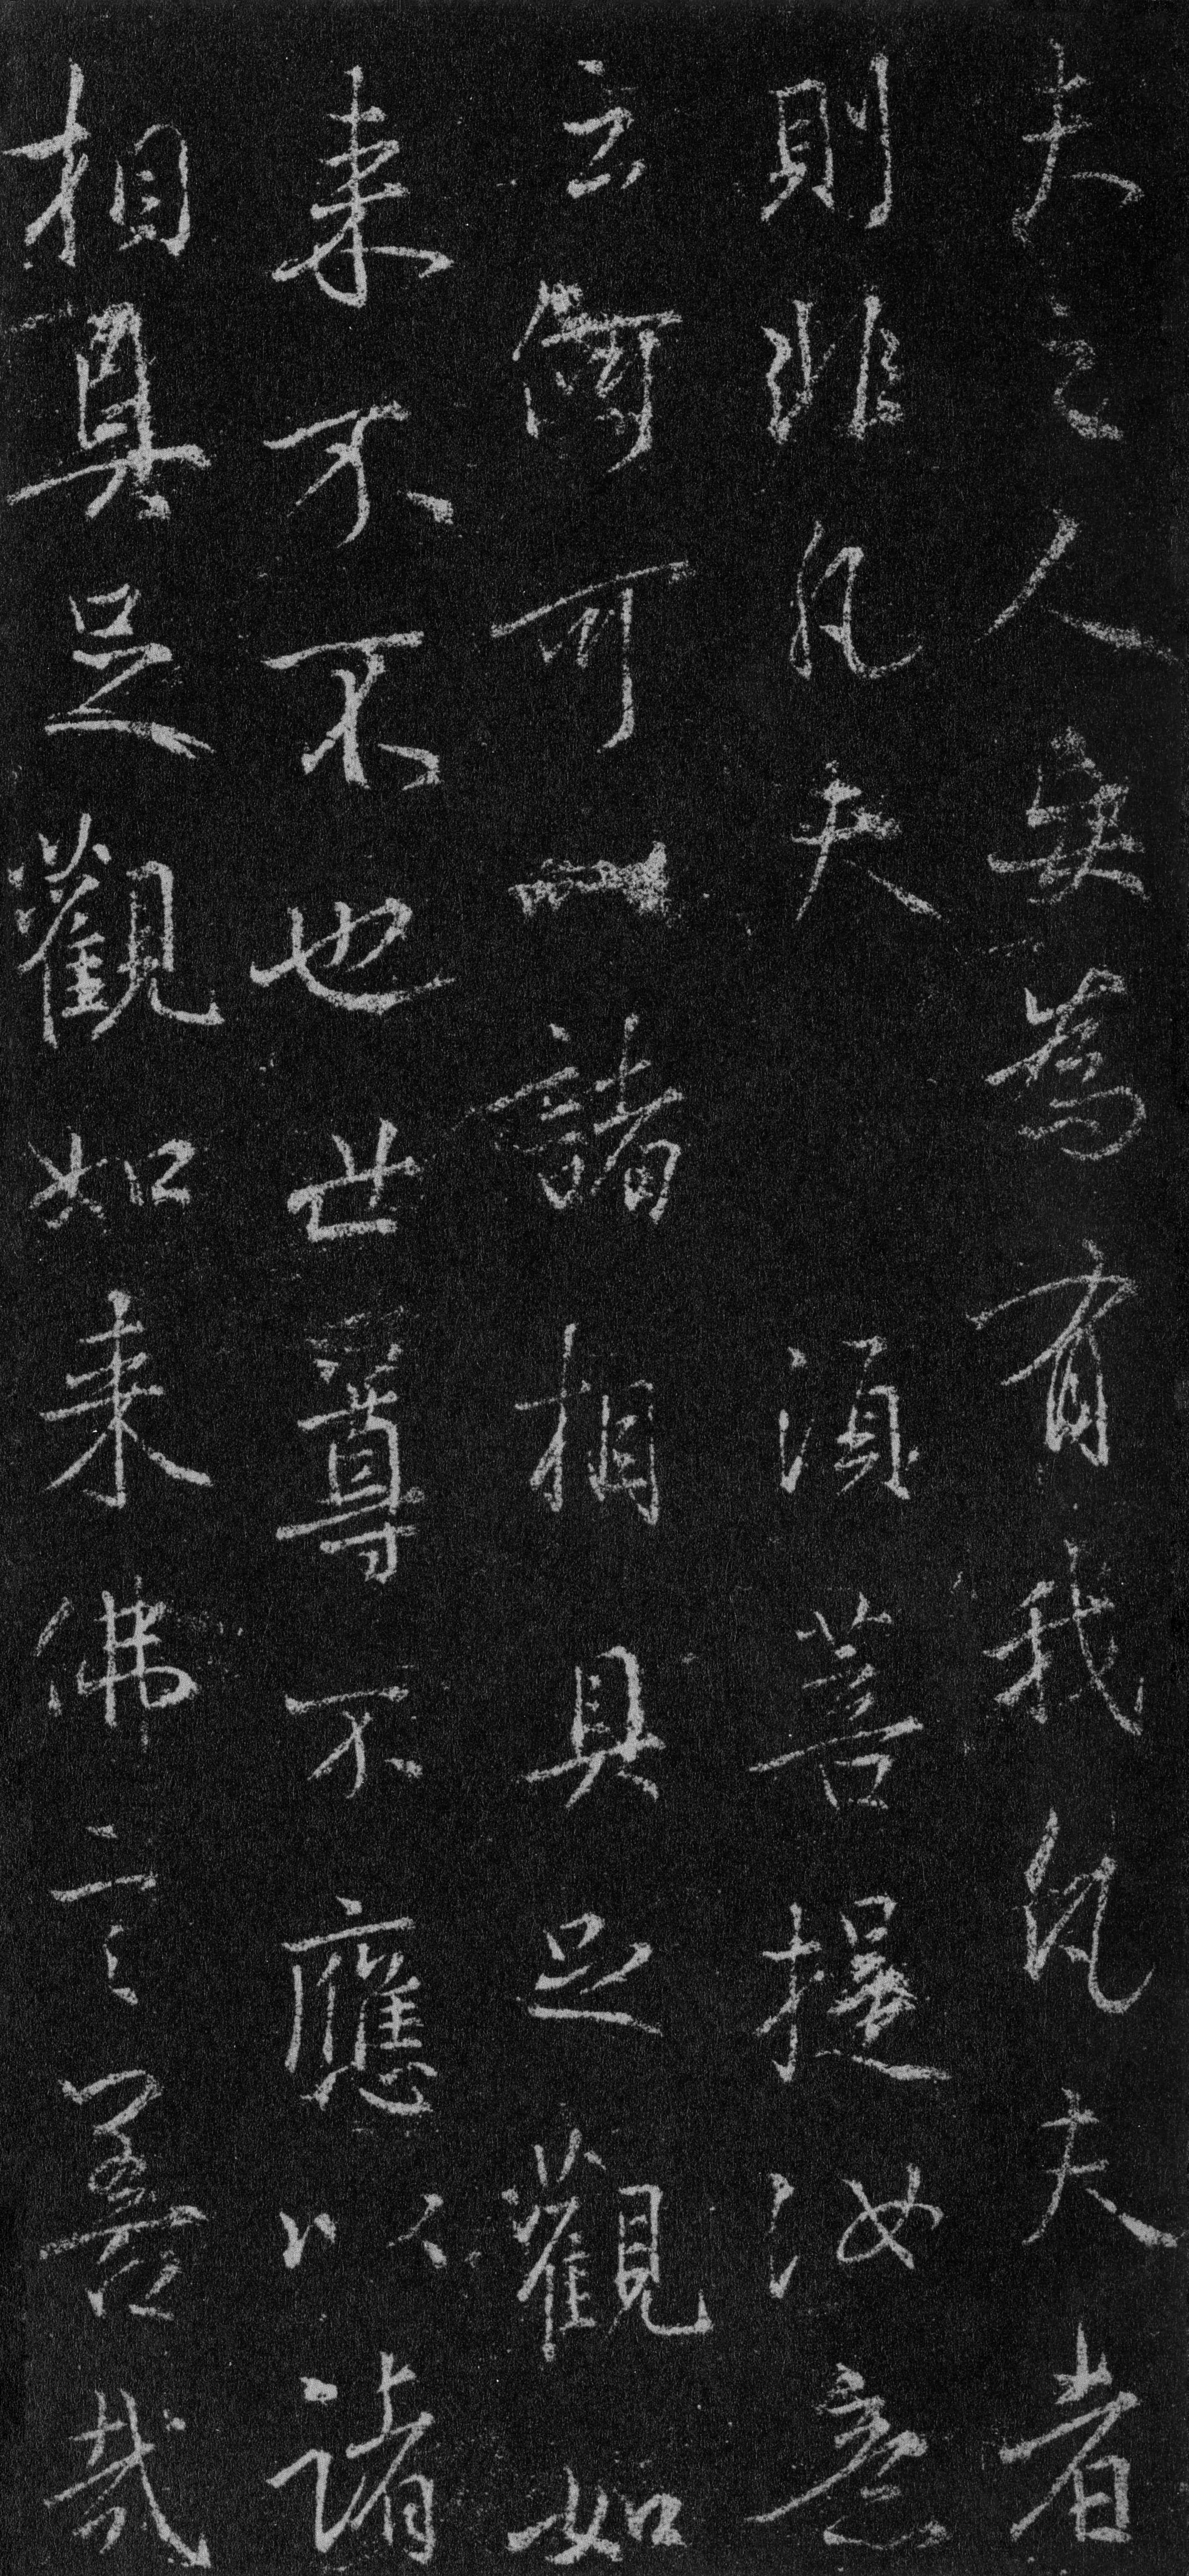 夫之人為有我凡夫者
則非凡夫 須菩提汝意
云何可以諸相具足觀如
來不不也世尊不應以諸
相具足觀如來佛言善哉